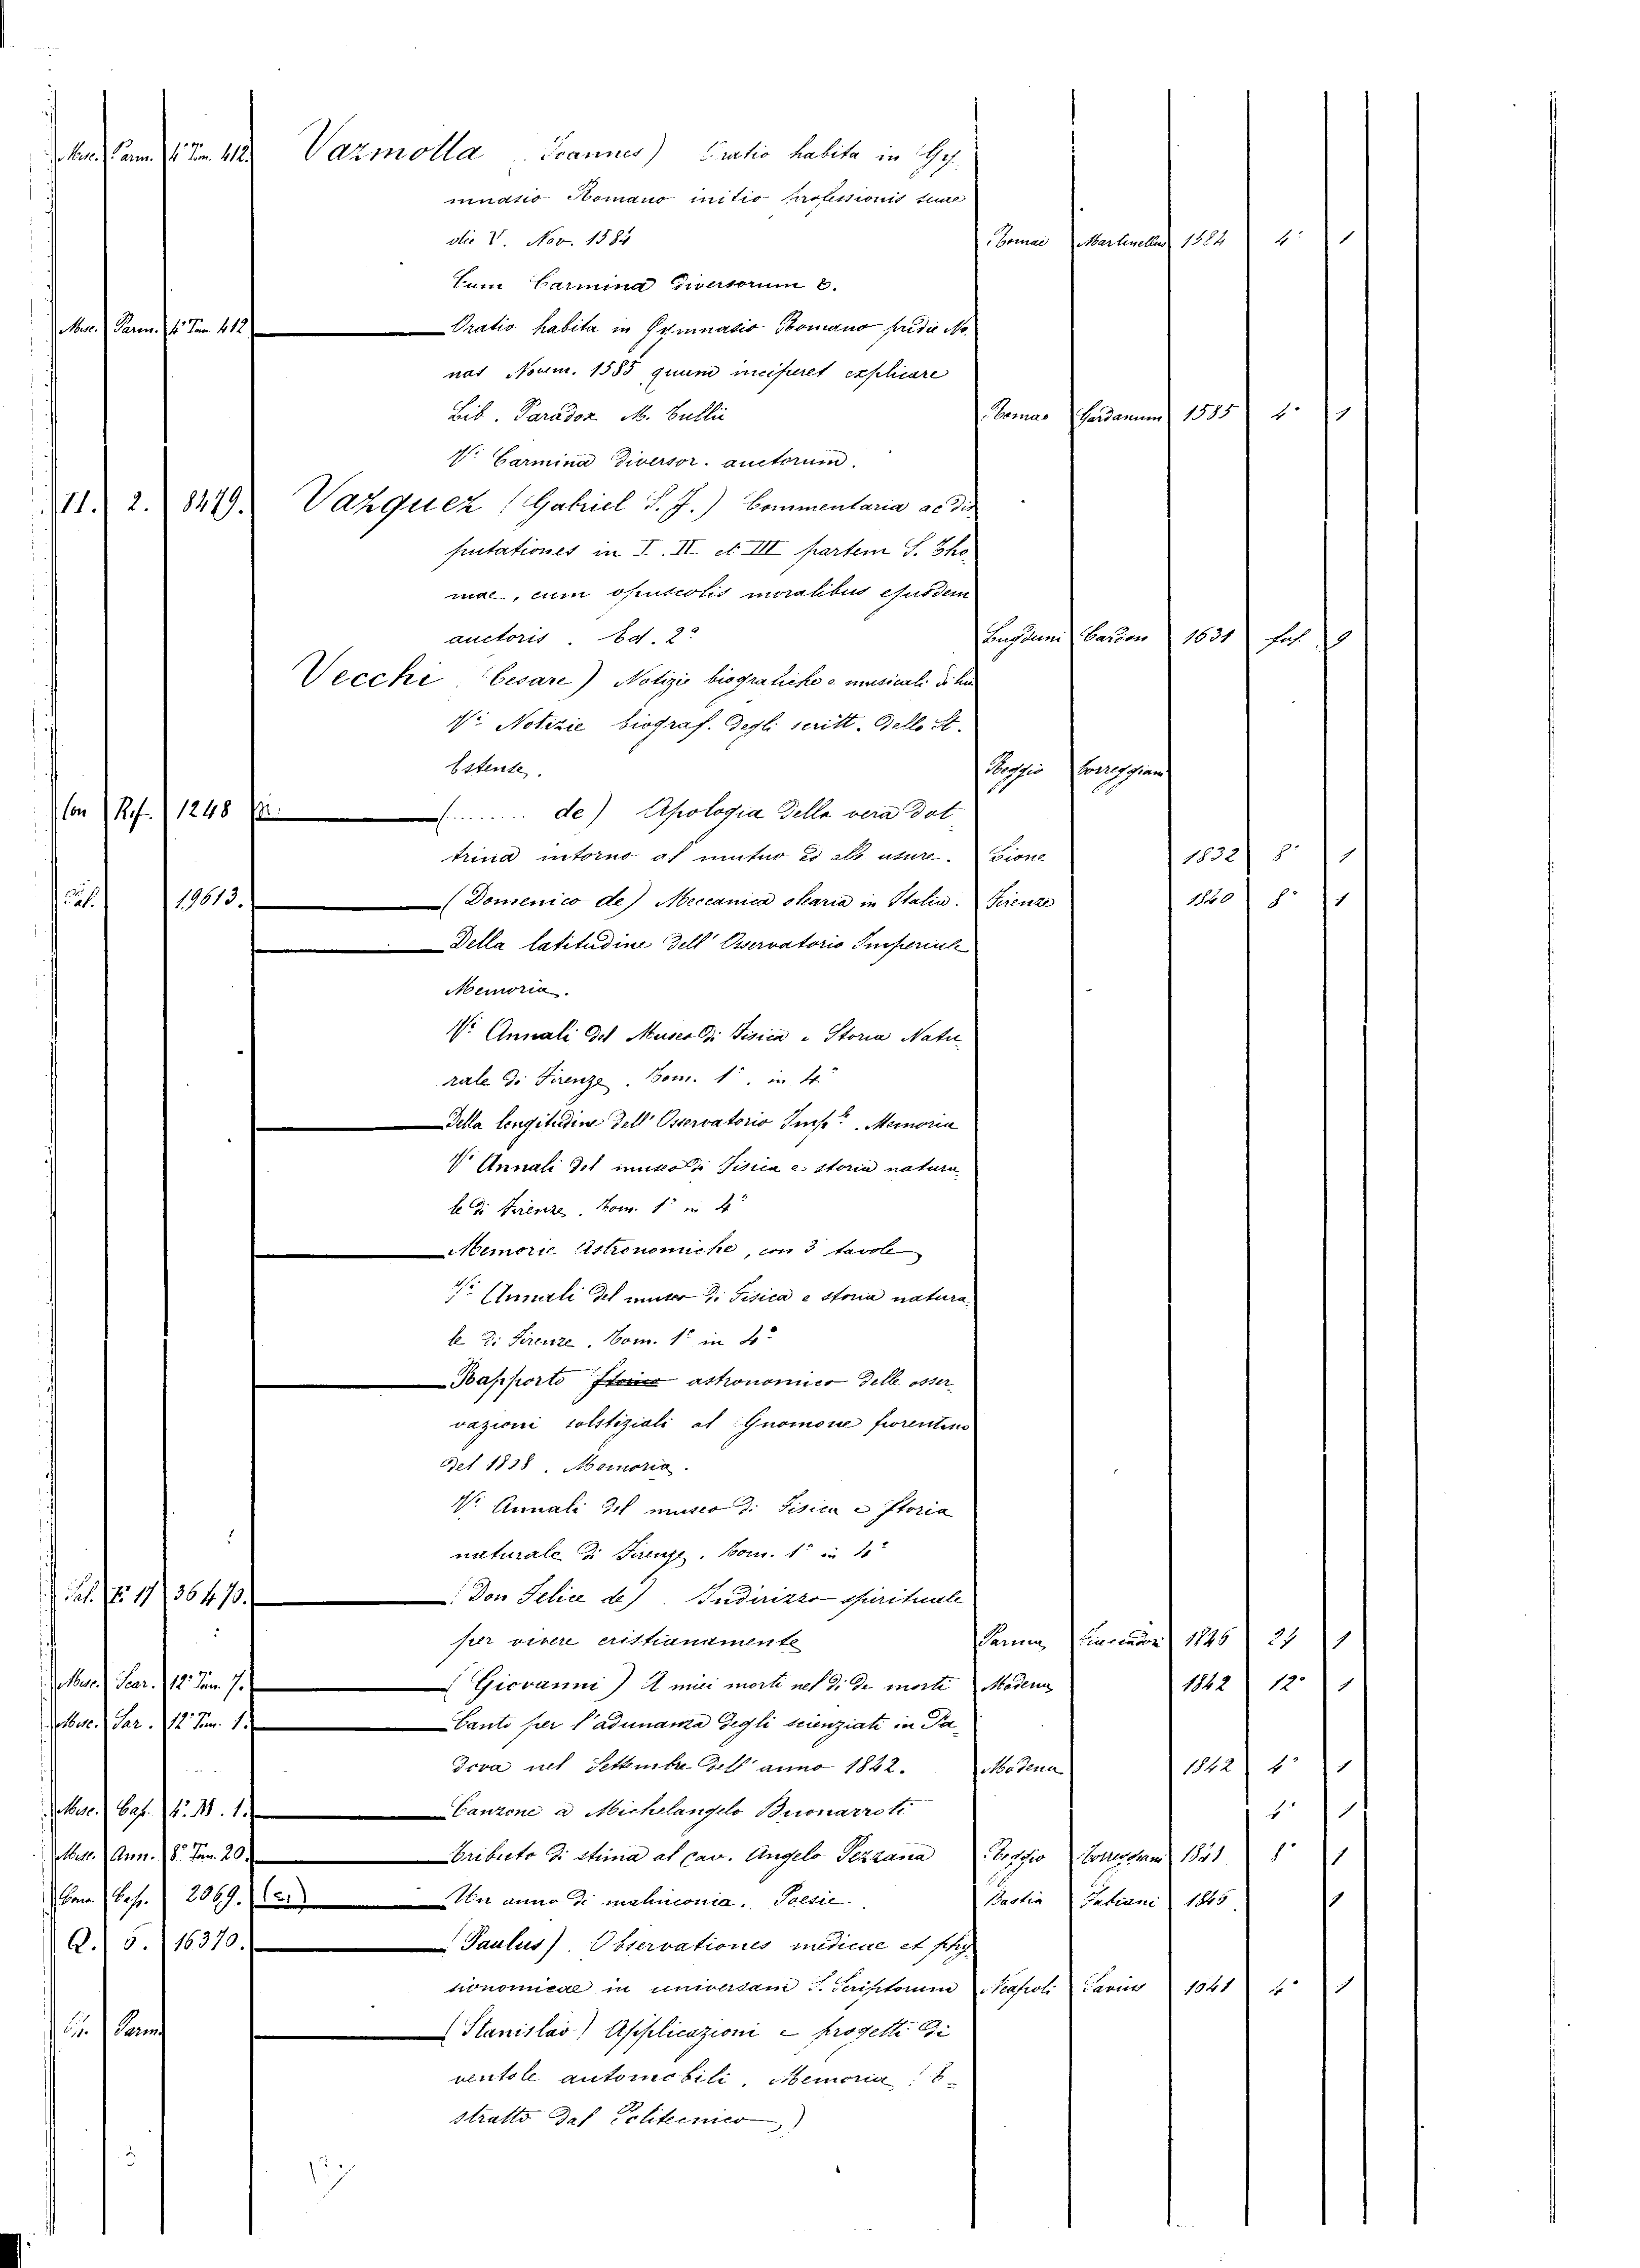 Misc. Parm. 4° Tom. 412. Vazmotta (Ioannes) Oratio habita in Gy-
mnasio Romano initio professionis suae
die V. Nov. 1584 Romae Martinellus 1584 4° 1
Cum Carmina Diversorum &.
Misc. Parm. 4° Tom. 412 Oratio habita in Gymnasio Romano pridie No-
nas Novem. 1585 quum inciperet explicare
Lib. Paradox M. Tullii Romae Gardanum 1585 4° 1
V. Carmina Diversor. auctorum.
II. 2. 8479. Vazquez (Gabriel S. J.) Commentaria ac dis
putationes in I. II et III partem S. Tho-
mae, cum opuscolis moralibus ejusdem
auctoris. Ed. 2ª Lugduni Cardon 1631 fol. 9
Vecchi (Cesare) Notizie biografiche e musicali di lui
V. Notizie biograf. degli scritt. dello St.
Estense. Reggio Torreggiani
Con Rif. 1248 (........ de) Apologia della vera dot-
trina intorno al mutuo ed alle usure. Sione 1832 8° 1
Pal. 19613. (Domenico de) Meccanica olearia in Italia. Firenze 1840 8° 1
Della latitudine dell' Osservatorio Imperiale
Memoria.
V. Annali del Museo di Fisica e Storia Natu-
rale di Firenze. Tom. 1°. in 4°
Della longitudine dell' Osservatorio Imp.e. Memoria
V. Annali del museo di Fisica e storia natura
le di Firenze. Tom. 1° in 4°
Memorie Astronomiche, con 3 tavole
V. Annali del museo di Fisica e storia natura-
le di Firenze. Tom. 1° in 4°
Rapporto storico astronomico delle osser-
vazioni solstiziali al Gnomone fiorentino
del 1838. Memoria.
V. Annali del museo di Fisica e storia
naturale di Firenze. Tom. 1° in 4°
Pal. 17 36470. (Don Felice de). Indirizzo spirituale
per vivere cristianamente Parma 1846 24 1
Misc. Scar. 12° Tom. 7. (Giovanni) A miei morti nel dì de morti Modena 1842 12° 1
Misc. Sar. 12° Tom. 1. Canto per l'adunanza degli scienziati in Pa-
dova nel Settembre dell' anno 1842. Modena 1842 4° 1
Misc. Cap. 4. M. 1. Canzone a Michelangelo Buonarroti 4° 1
Misc. Ann. 8° Tom. 20. Tributo di stima al cav. Angelo Pezzana Reggio Torreggiani 1841 8° 1
2069. Un anno di malinconia. Poesie Bastia Fabiani 1845 1
Q. 5. 16370. (Paulus). Observationes medicae et phy-
sionomicae in universam S. Scriptorum Neapoli Savius 1641 4° 1
Parm (Stanislao) Applicazioni e progetti di
ventole automobili. Memoria (E-
stratto dal Politecnico)